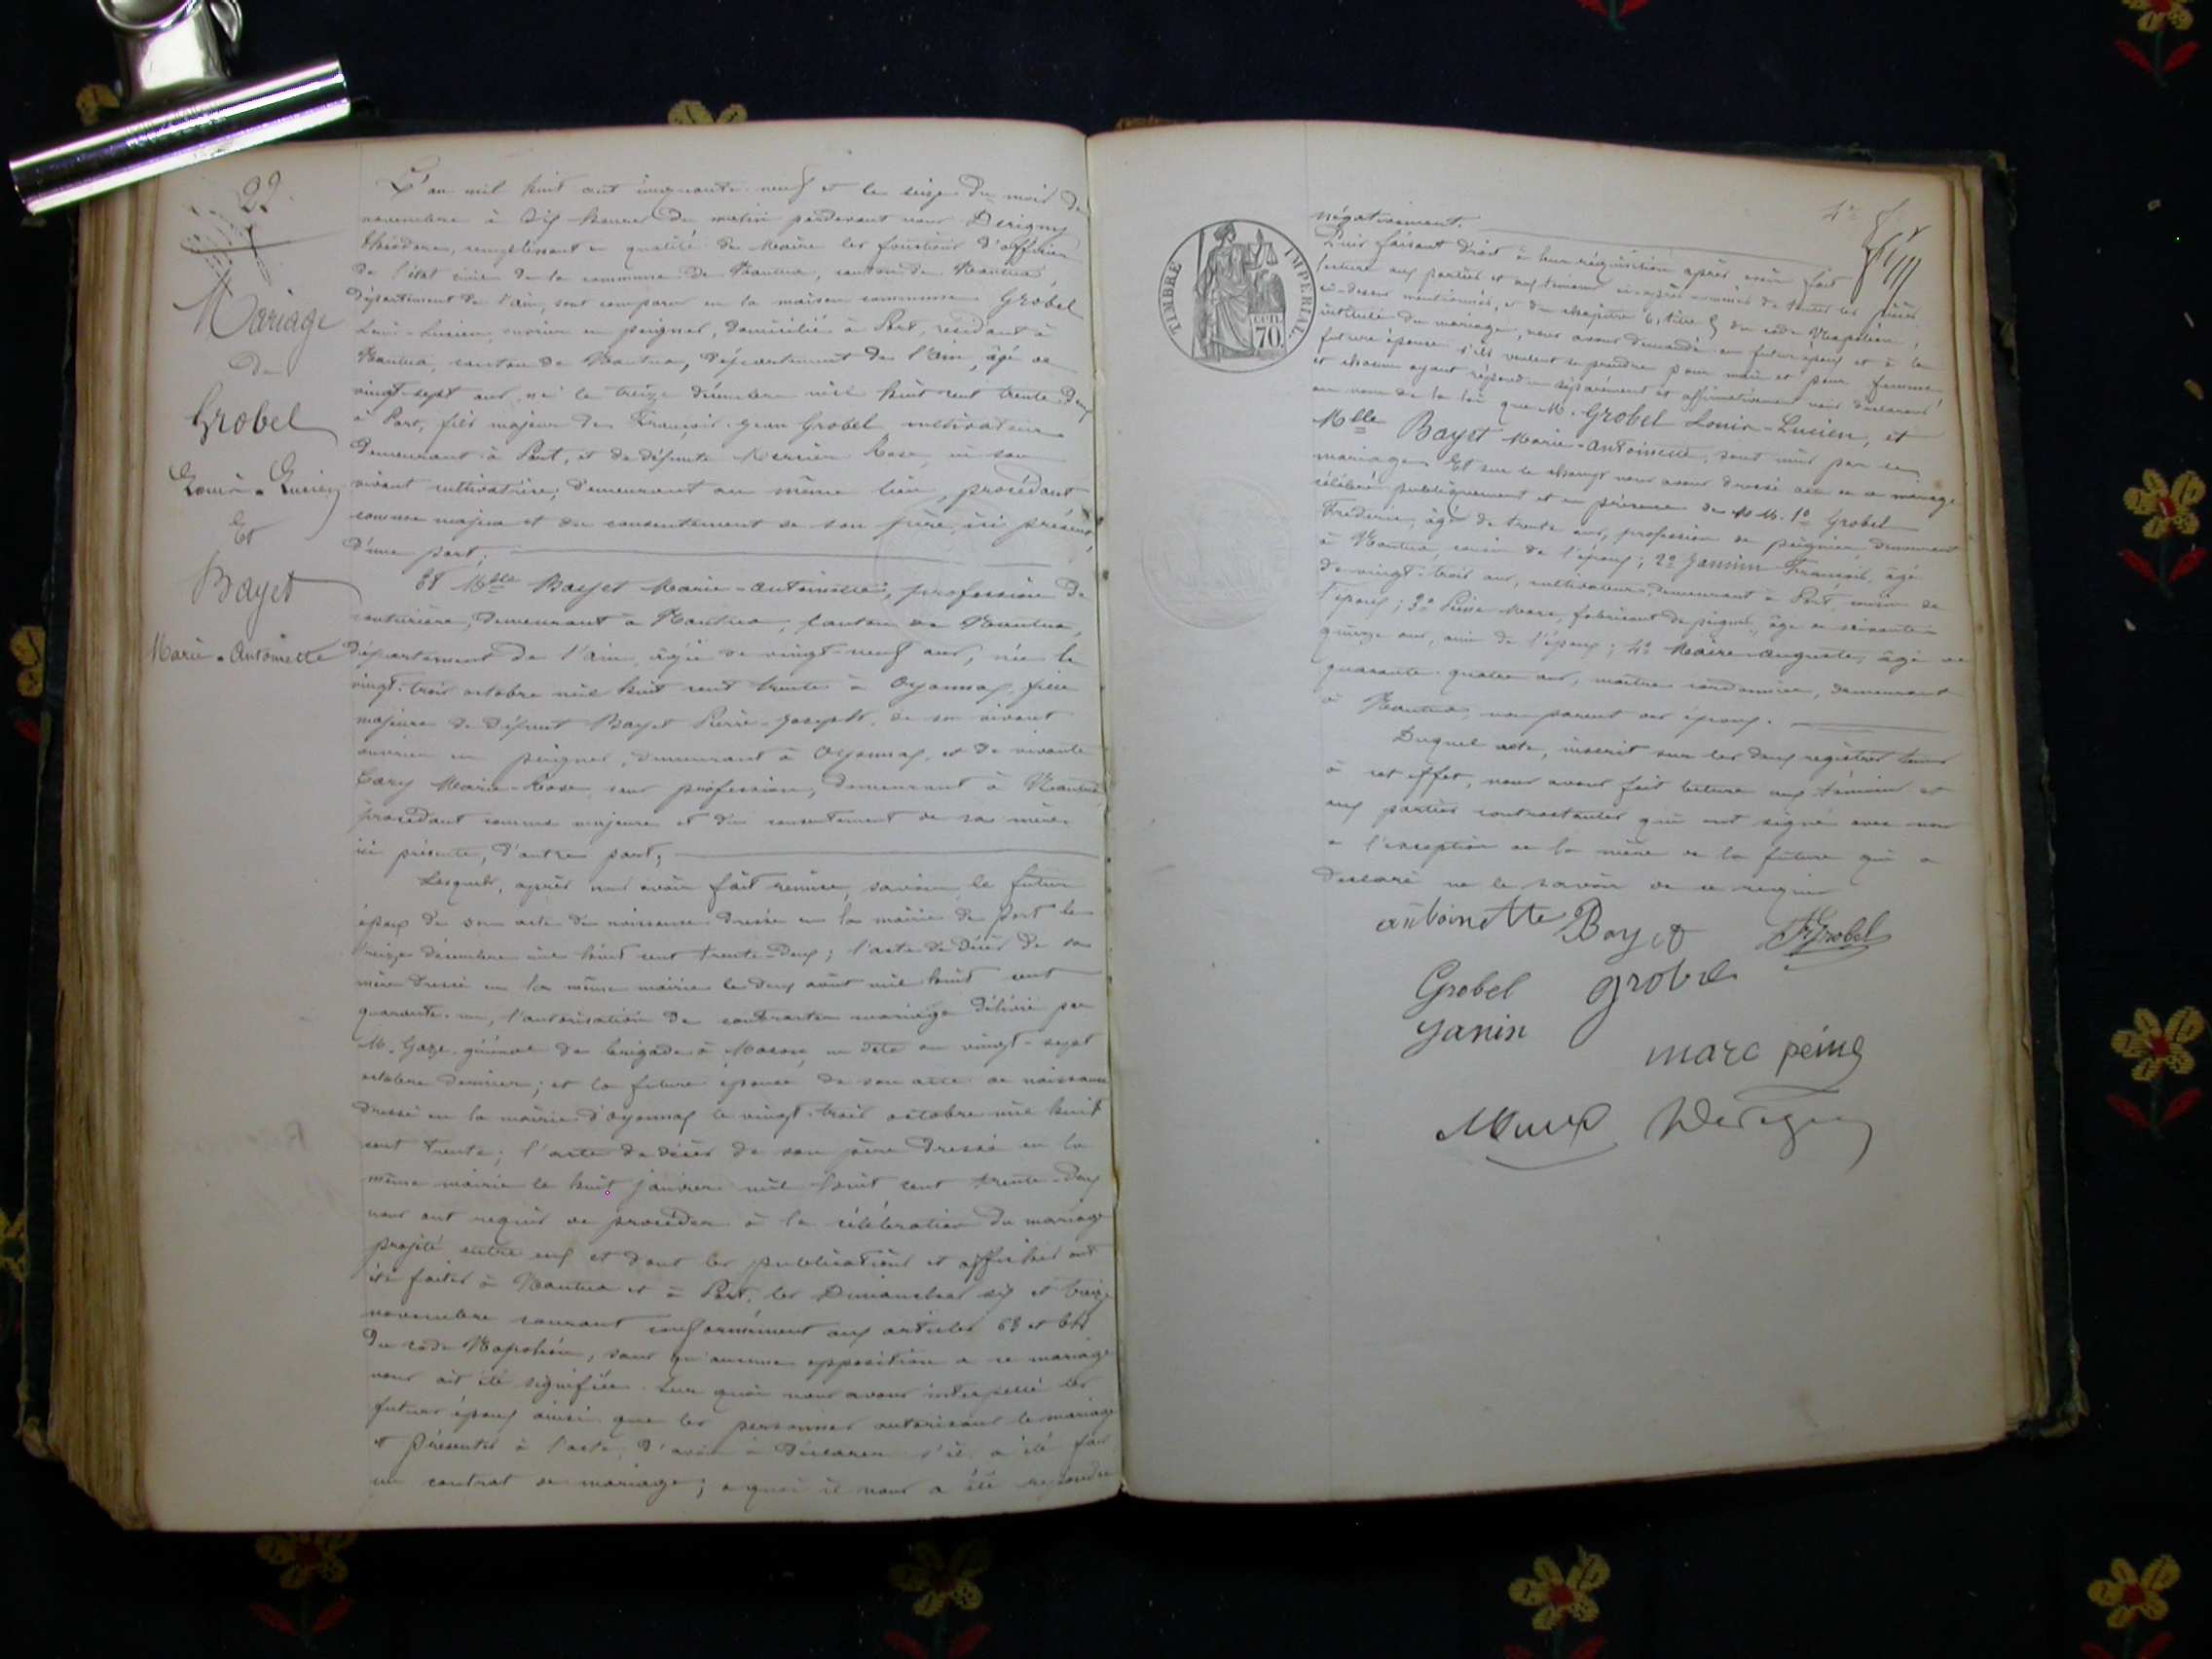 22.
Mariage
de
Grobel
Louis-Lucien
Et
Bayet
Marie-Antoinette
L'an mil huit cent cinquante-neuf et le seize du mois de
novembre à dix heures du matin pardevant nous Derigny
Théodore, remplissant en qualité de Maire les fonctions d'officier
de l'état civil de la commune de Nantua, canton de Nantua,
département de l'ain, sont comparus en la maison commune Grobel
Louis-Lucien, ouvrier en peignes, domicilié à Port, résidant à
Nantua, canton de Nantua, département de l'ain, âgé de
vingt-sept ans, né le treize décembre mil huit cent trente-deux
à Port, fils majeur de François-Jean Grobel cultivateur
demeurant à Port, et de défunte Mercier Rose, en son
vivant cultivatrice, demeurant au même lieu, procédant
comme majeur et du consentement de son père ici présent,
d'une part;
Et Mlle Bayet Marie-Antoinette, profession de
couturière, demeurant à Nantua, canton de Nantua,
département de l'ain, âgée de vingt-neuf ans, née le
vingt-trois octobre mil huit cent trente à Oyonnax, fille
majeure de défunt Bayet Pierre-Joseph, de son vivant
ouvrier en peignes, demeurant à Oyonnax, et de vivante
Marie-Rose, sans profession, demeurant à Nantua,
procédant comme majeure et du consentement de sa mère
ici présente, d'autre part;
Lesquels, après nous avoir fait remise, savoir: le futur
époux de son acte de naissance dressé en la mairie de Port le
treize décembre mil huit cent trente-deux; l'acte de décès de sa
mère dressé en la même mairie le deux août mil huit cent
quarante-un, l'autorisation de contracter mariage délivré par
M. Gaze, général de brigade à Macon, en date du vingt-sept
octobre dernier; et la future épouse de son acte de naissance
dressé en la mairie d'oyonnax le vingt-trois octobre mil huit
cent trente; l'acte de décès de son père dressé en la
même mairie le huit janvier mil huit cent trente-deux
nous ont requis de procéder à la célébration du mariage
projeté entre eux et dont les publications et affiches ont
été faites à Nantua et à Port, les Dimanches six et treize
novembre courant conformément aux articles 63 et 64
du code Napoléon, sans qu'aucune opposition à ce mariage
nous ait été signifiée. Sur quoi nous avons interpellé les
futurs époux ainsi que les personnes autorisant le mariage
et présentes à l'acte, d'avoir à déclarer s'il a été fait
un contrat de mariage; a quoi il nous a été répondu
négativement.
Puis faisant droit à leur réquisition après avoir fait
lecture aux parties et aux témoins ci-après nommés de toutes les pièces
ci-dessus mentionnées, et du chapitre 6, titre 5 du code Napoléon,
intitulé du mariage, nous avons demandé au futur époux et à la
future épouse s'ils veulent se prendre pour mari et pour femme,
et chacun ayant répondu séparément et affirmativement nous déclarons
au nom de la loi que M. Grobel Louis-Lucien, et
Mlle Bayet Marie-Antoinette, sont unis par le
mariage. Et sur le champ nous avons dressé acte de ce mariage
célébré publiquement et en présence de M.M. 1º Grobel
Frédéric, âgé de trente ans, profession de peignier, demeurant
à Nantua, cousin de l'époux; 2º Jannin François, âgé
de vingt-trois ans, cultivateur, demeurant à Port, cousin de
l'époux; 3º Marc, fabricant de peignes, âgé de soixante-
quinze ans, ami de l'époux; 4º Auguste, âgé de
quarante-quatre ans, maître cordonnier, demeurant
à Nantua, non parent des époux.
Duquel acte, inscrit sur les deux registres tenus
à cet effet, nous avons fait lecture aux témoins et
aux parties contractantes qui ont signé avec nous
a l'exception de la mère de la future qui a
déclaré ne le savoir de ce requis
TIMBRE IMPERIAL
CEN. 70.
antoinette Bayet
Fc Grobel
Grobel
grobel
Janin
marc
Derigny